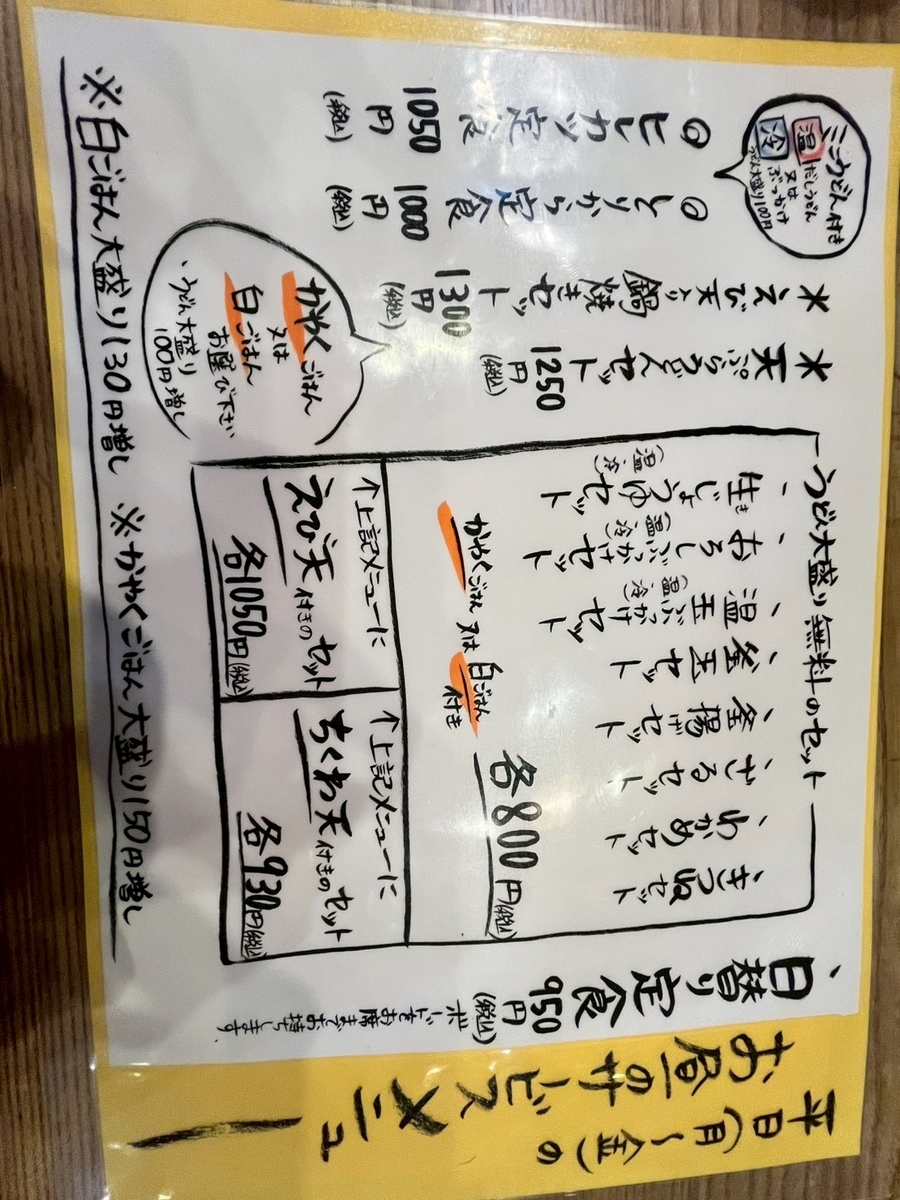 平日(月〜金)の
お昼のサービスメニュー
、日替り定食
950円
(税込)
ボードをお席までお持ちします。
うどん大盛り無料のセット
、きつねセット
、わかめセット
、ざるセット
、釜揚げセット
、釜玉セット
、温玉ぶっかけセット
(温 冷)
、おろしぶっかけセット
(温 冷)
、生じょうゆセット
き
(温 冷)
かやくごはん 又は 白ごはん付き
各800円(税込)
↑上記メニューに
ちくわ天付きのセット
各930円(税込)
↑上記メニューに
えび天付きのセット
各1050円(税込)
＊天ぷらうどんセット
1250円
(税込)
＊えび天入り鍋焼きセット
1300円
(税込)
かやくごはん
又は
白ごはん
お選び下さい
・うどん大盛り
100円増し
◎とりから定食
1000円
(税込)
◎ヒレカツ定食
1050円
(税込)
ミニうどん付き
温 だしうどん
又は
冷 ぶっかけ
うどん大盛り100円
※白ごはん大盛り130円増し ※かやくごはん大盛り150円増し